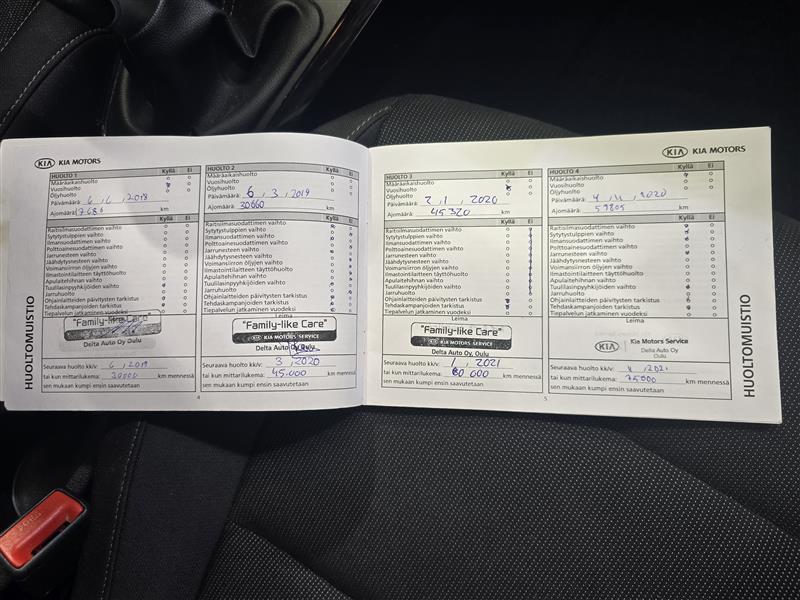 KIA KIA MOTORS
HUOLTO 1 Kyllä Ei
Määräaikaishuolto
Vuosihuolto
Öljyhuolto
Päivämäärä: 6 , 6 , 2018
Ajomäärä: km
Kyllä Ei
Raitisilmasuodattimen vaihto
Sytytystulppien vaihto
Ilmansuodattimen vaihto
Polttoainesuodattimen vaihto
Jarrunesteen vaihto
Jäähdytysnesteen vaihto
Voimansiirron öljyjen vaihto
Ilmastointilaitteen täyttöhuolto
Apulaitehihnan vaihto
Tuulilasinpyyhkijöiden vaihto
Jarruhuolto
Ohjainlaitteiden päivitysten tarkistus
Tehdaskampanjoiden tarkistus
Tiepalvelun jatkaminen vuodeksi
Leima
"Family-like Care"
Delta Auto Oy Oulu
Seuraava huolto kk/v: 6 , 2019
tai kun mittarilukema: 30000 km mennessä
sen mukaan kumpi ensin saavutetaan
HUOLTO 2 Kyllä Ei
Määräaikaishuolto
Vuosihuolto
Öljyhuolto
Päivämäärä: 6 , 3 , 2019
Ajomäärä: 30660 km
Kyllä Ei
Raitisilmasuodattimen vaihto
Sytytystulppien vaihto
Ilmansuodattimen vaihto
Polttoainesuodattimen vaihto
Jarrunesteen vaihto
Jäähdytysnesteen vaihto
Voimansiirron öljyjen vaihto
Ilmastointilaitteen täyttöhuolto
Apulaitehihnan vaihto
Tuulilasinpyyhkijöiden vaihto
Jarruhuolto
Ohjainlaitteiden päivitysten tarkistus
Tehdaskampanjoiden tarkistus
Tiepalvelun jatkaminen vuodeksi
Leima
"Family-like Care"
KIA KIA MOTORS SERVICE
Delta Auto Oy Oulu
Seuraava huolto kk/v: 3 , 2020
tai kun mittarilukema: 45.000 km mennessä
sen mukaan kumpi ensin saavutetaan
4
HUOLTOMUISTIO
KIA KIA MOTORS
HUOLTO 3 Kyllä Ei
Määräaikaishuolto
Vuosihuolto
Öljyhuolto
Päivämäärä: 2 , 1 , 2020
Ajomäärä: 45320 km
Kyllä Ei
Raitisilmasuodattimen vaihto
Sytytystulppien vaihto
Ilmansuodattimen vaihto
Polttoainesuodattimen vaihto
Jarrunesteen vaihto
Jäähdytysnesteen vaihto
Voimansiirron öljyjen vaihto
Ilmastointilaitteen täyttöhuolto
Apulaitehihnan vaihto
Tuulilasinpyyhkijöiden vaihto
Jarruhuolto
Ohjainlaitteiden päivitysten tarkistus
Tehdaskampanjoiden tarkistus
Tiepalvelun jatkaminen vuodeksi
Leima
"Family-like Care"
KIA KIA MOTORS SERVICE
Delta Auto Oy, Oulu
Seuraava huolto kk/v: 1 , 2021
tai kun mittarilukema: 60 000 km mennessä
sen mukaan kumpi ensin saavutetaan
5
HUOLTO 4 Kyllä Ei
Määräaikaishuolto
Vuosihuolto
Öljyhuolto
Päivämäärä: 4 , 11 , 2020
Ajomäärä: 59805 km
Kyllä Ei
Raitisilmasuodattimen vaihto
Sytytystulppien vaihto
Ilmansuodattimen vaihto
Polttoainesuodattimen vaihto
Jarrunesteen vaihto
Jäähdytysnesteen vaihto
Voimansiirron öljyjen vaihto
Ilmastointilaitteen täyttöhuolto
Apulaitehihnan vaihto
Tuulilasinpyyhkijöiden vaihto
Jarruhuolto
Ohjainlaitteiden päivitysten tarkistus
Tehdaskampanjoiden tarkistus
Tiepalvelun jatkaminen vuodeksi
Leima
KIA Kia Motors Service
Oulu
Seuraava huolto kk/v: , 2021
tai kun mittarilukema: 75000 km mennessä
sen mukaan kumpi ensin saavutetaan
HUOLTOMUISTIO
PRESS